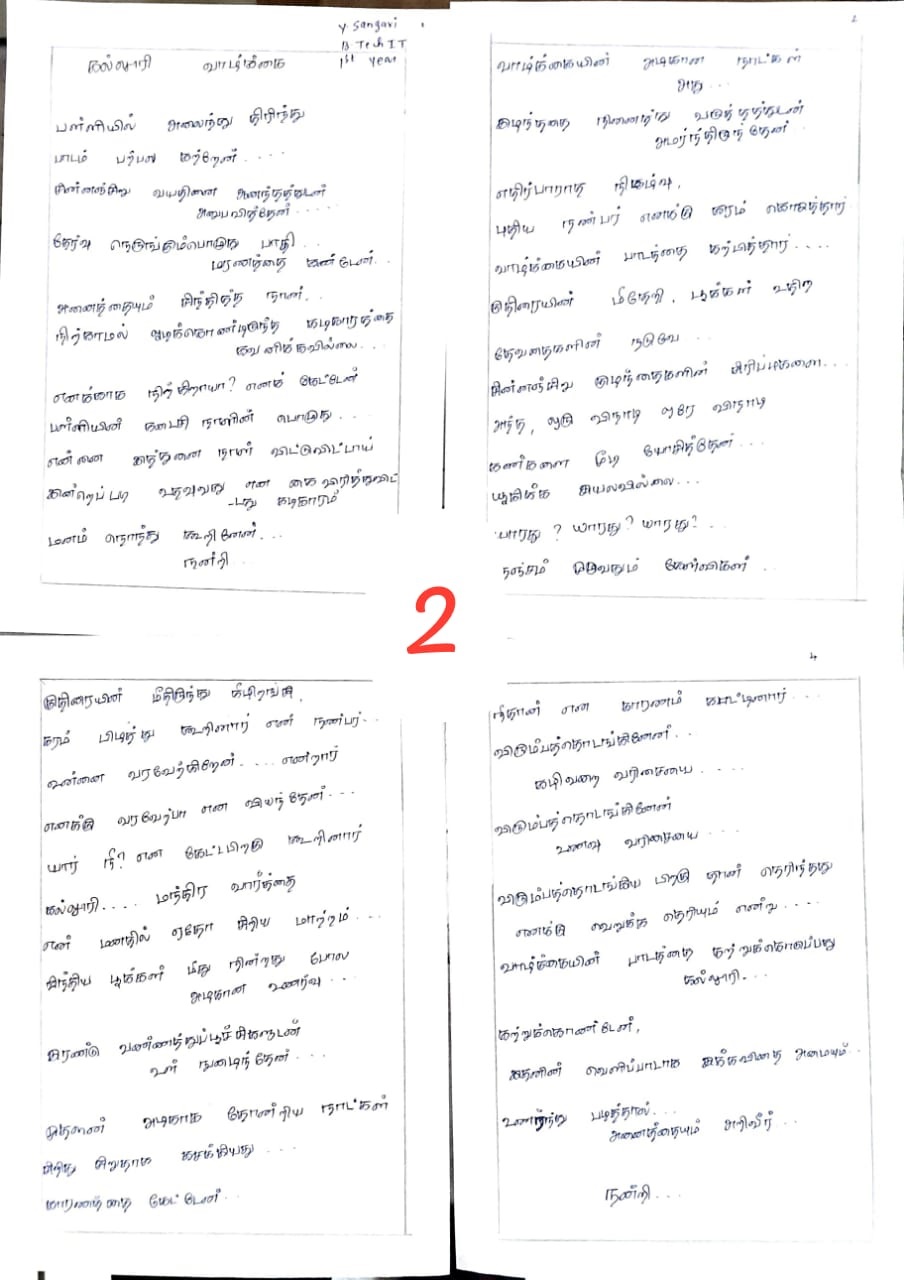 Y. Sangari
B Tech IT
1st Year
கல்லூரி வாழ்க்கை
பள்ளியில் அலைந்து திரிந்து
பாடம் பற்பல கற்றேன்....
சின்னஞ்சிறு வயதினை அனந்தத்துடன்
அனுபவித்தேன்.....
தேர்வு நெருங்கும்பொழுது பாதி...
மரணத்தை கண்டேன்...
அனைத்தையும் சிந்தித்த நான்..
நிற்காமல் ஓடிக்கொண்டிருந்த கடிகாரத்தை
கவனிக்கவில்லை...
எனக்காக நிற்கிறாயா? எனக் கேட்டேன்
பள்ளியின் கடைசி நாளின் பொழுது....
என்னை இத்தனை நாள் விட்டுவிட்டாய்
இன்றெப்படி உதவுவது என கை விரித்துவிட்
-டது கடிகாரம்
மனம் நொந்து கூறினேன்...
நன்றி...
2
வாழ்க்கையின் அழகான நாட்கள்
அது...
இழந்ததை நினைத்து வருத்தத்துடன்
அமர்ந்திருந்தேன்..
எதிர்பாராத நிகழ்வு,
புதிய நண்பர் எனக்கு கரம் கொடுத்தார்
வாழ்க்கையின் பாடத்தை கற்பித்தார்....
குதிரையின் மீதேறி, பூக்கள் உதிர
தேவதைகளின் நடுவே...
சின்னஞ்சிறு குழந்தைகளின் சிரிப்புகளை...
அந்த, ஒரு விநாடி ஒரே விநாடி
கண்களை மூடி யோசித்தேன்...
யூகிக்க இயலவில்லை...
யாரது? யாரது? யாரது?...
நெஞ்சம் முழுவதும் கேள்விகள்..
2
குதிரையின் மீதிருந்து கீழிறங்கி,
கரம் பிடித்து கூறினார் என் நண்பர்...
உன்னை வரவேற்கிறேன்.... என்றார்
எனக்கு வரவேற்பா என வியந்தேன்...
யார் நீ? என கேட்டபிறகு கூறினார்
கல்லூரி.... மந்திர வார்த்தை
என் மனதில் ஏதோ சிறிய மாற்றம்....
சிந்திய பூக்கள் மீது நின்றது போல
அழகான உணர்வு...
இரண்டு வண்ணத்துப்பூச்சிகளுடன்
உள் நுழைந்தேன்...
முதலில் அழகாக தோன்றிய நாட்கள்
சிறிது சிறுதாக கசக்கியது...
காரணத்தை கேட்டேன்..
4
நீதான் என காரணம் காட்டினார்...
விரும்பத்தொடங்கினேன்...
கழிவறை வரிசையை....
விரும்பத்தொடங்கினேன்
உணவு வரிசையை...
விரும்பத்தொடங்கிய பிறகு தான் தெரிந்தது
எனக்கு வெறுக்க தெரியும் என்று....
வாழ்க்கையின் பாடத்தை கற்றுக்கொடுப்பது
கல்லூரி...
கற்றுக்கொண்டேன்,
இதனின் வெளிப்பாடாக இக்கவிதை அமையும்..
உணர்ந்து படித்தால்...
அனைத்தையும் அறிவீர்...
நன்றி...